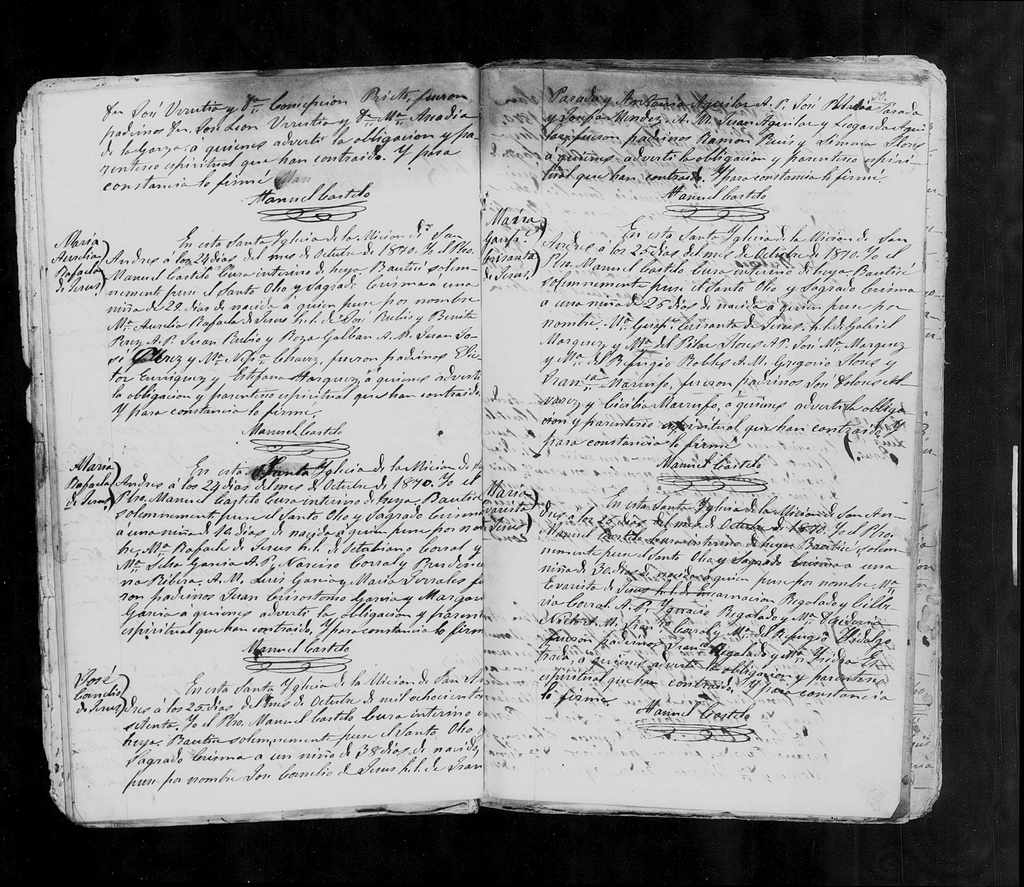 Dn José Urrutia y Dª Concepcion Prieto, fueron
padrinos Dn Leon Urrutia y Dª Mª Amadia
de la Garza á quienes advertí la obligacion y pa-
rentesco espiritual que han contraido. Y para
constancia lo firmé
Manuel Castelo
Maria
Aurelia
Rafaela
de Jesus.
En esta Santa Yglesia de la Mision de San
Andres á los 24 dias del mes de Octubre de 1870. Yo el Pbro.
Manuel Castelo Cura interino de heya Bauticé solem-
nemente puse el Santo Oleo y Sagrado Crisma á una
niña de 29 dias de nacida á quien puse por nombre
Mª Aurelia Rafaela de Jesus h.l. de José Rubio y Benita
Ruiz A.P. Juan Rubio y Roza Galban A.M. Juan Jo-
sé Perez y Mª Chavez, fueron padrinos
Enriquez y Estefana Marquez á quienes advertí
la obligacion y parentesco espiritual que han contraido.
Y para constancia lo firmé.
Manuel Castelo
Maria
Rafaela
de Jesus.
En esta Santa Yglesia de la Mision de San
Andres á los 24 dias del mes de Octubre de 1870. Yo el
Pbro. Manuel Castelo Cura interino de heya Bauticé
solemnemente puse el Santo Oleo y Sagrado Crisma
á una niña de dias de nacida á quien puse por nom-
bre, Mª Rafaela de Jesus h.l. de Octabiano Corral y
Mª Garcia A.P. Narciso Corral y
Ribera. A.M. Luis Garcia y Maria Torrales fue-
ron padrinos Juan Crisostomo Garcia y Margarita
Garcia á quienes advertí la obligacion y parentesco
espiritual que han contraido, Y para constancia lo firmé
Manuel Castelo
José
Cornelio
de Jesus
En esta Santa Yglesia de la Mision de San An-
dres á los 25 dias del mes de Octubre de mil ochocientos
setenta. Yo el Pbro. Manuel Castelo Cura interino de
heya. Bauticé solemnemente puse el Santo Oleo y
Sagrado Crisma a un niño de 38 dias de nacido,
puse por nombre José Cornelio de Jesus h.l. de Fran
Parada y Antonia Aguilar A.P. José Parada
y Josefa Mendez A.M. Juan Aguilar y Leogarda Agui-
lar, fueron padrinos Ramon Ruis y Simona Flores
á quienes advertí la obligacion y parentesco espiri-
tual que han contraido. Y para constancia lo firmé.
Manuel Castelo
Maria
Crisanta
de Jesus.
En esta Santa Yglesia de la Mision de San
Andres á los 25 dias del mes de Octubre de 1870. Yo el
Pbro. Manuel Castelo Cura interino de heya Bauticé
solemnemente puse el Santo Oleo y Sagrado Crisma
a una niña de 26 dias de nacida á quien puse por
nombre. Mª Crisanta de Jesus, h.l. de Gabriel
Marquez y Mª del Pilar Flores A.P. José Mª Marquez
y Mª del Refugio Robles A.M. Gregorio Flores y
Franca Marrufo, fueron padrinos Al-
varez y Cecilia Marrufo, á quienes advertí la obliga-
cion y parentesco espiritual que han contraido. Y
para constancia lo firmé
Manuel Castelo
Maria
Evarista
de Jesus
En esta Santa Yglesia de la Mision de San An-
dres á los 25 dias del mes de Octubre de 1870. Yo el Pbro.
Manuel Castelo Cura interino de heya Bauticé solem-
nemente puse el Santo Oleo y Sagrado Crisma a una
niña de 30 dias de nacida á quien puse por nombre Mª
Evarista de Jesus h.l. de Encarnacion Regalado y
Corral A.P. Ignacio Regalado y Mª
A.M. Corral y Mª del Refugio Hidalgo
fueron padrinos Franco Regalado y Mª Ysidra
á quienes advertí la obligacion y parentesco
espiritual que han contraido. Y para constancia
lo firmé.
Manuel Castelo